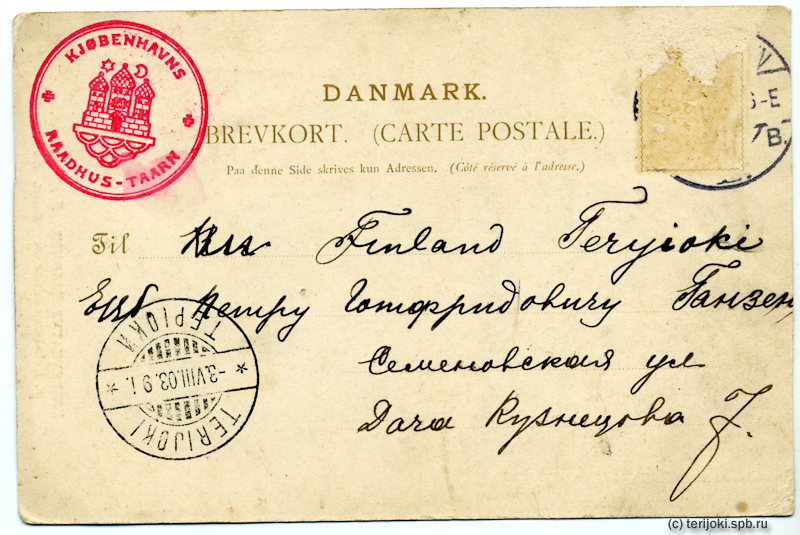 KJØBENHAVNS
RAADHUS-TAARN
DANMARK.
BREVKORT. (CARTE POSTALE.)
Paa denne Side skrives kun Adressen. (Côté réservé à l'adresse.)
6-E
7 B.
Til Finland Teryioki
Ецб Петру Готфридовичу Ганзен
Семеновская ул
Дача Кузнецова 7.
ТЕРІОКИ
-3.VIII.03.9 i.
TERIJOKI
(c) terijoki.spb.ru